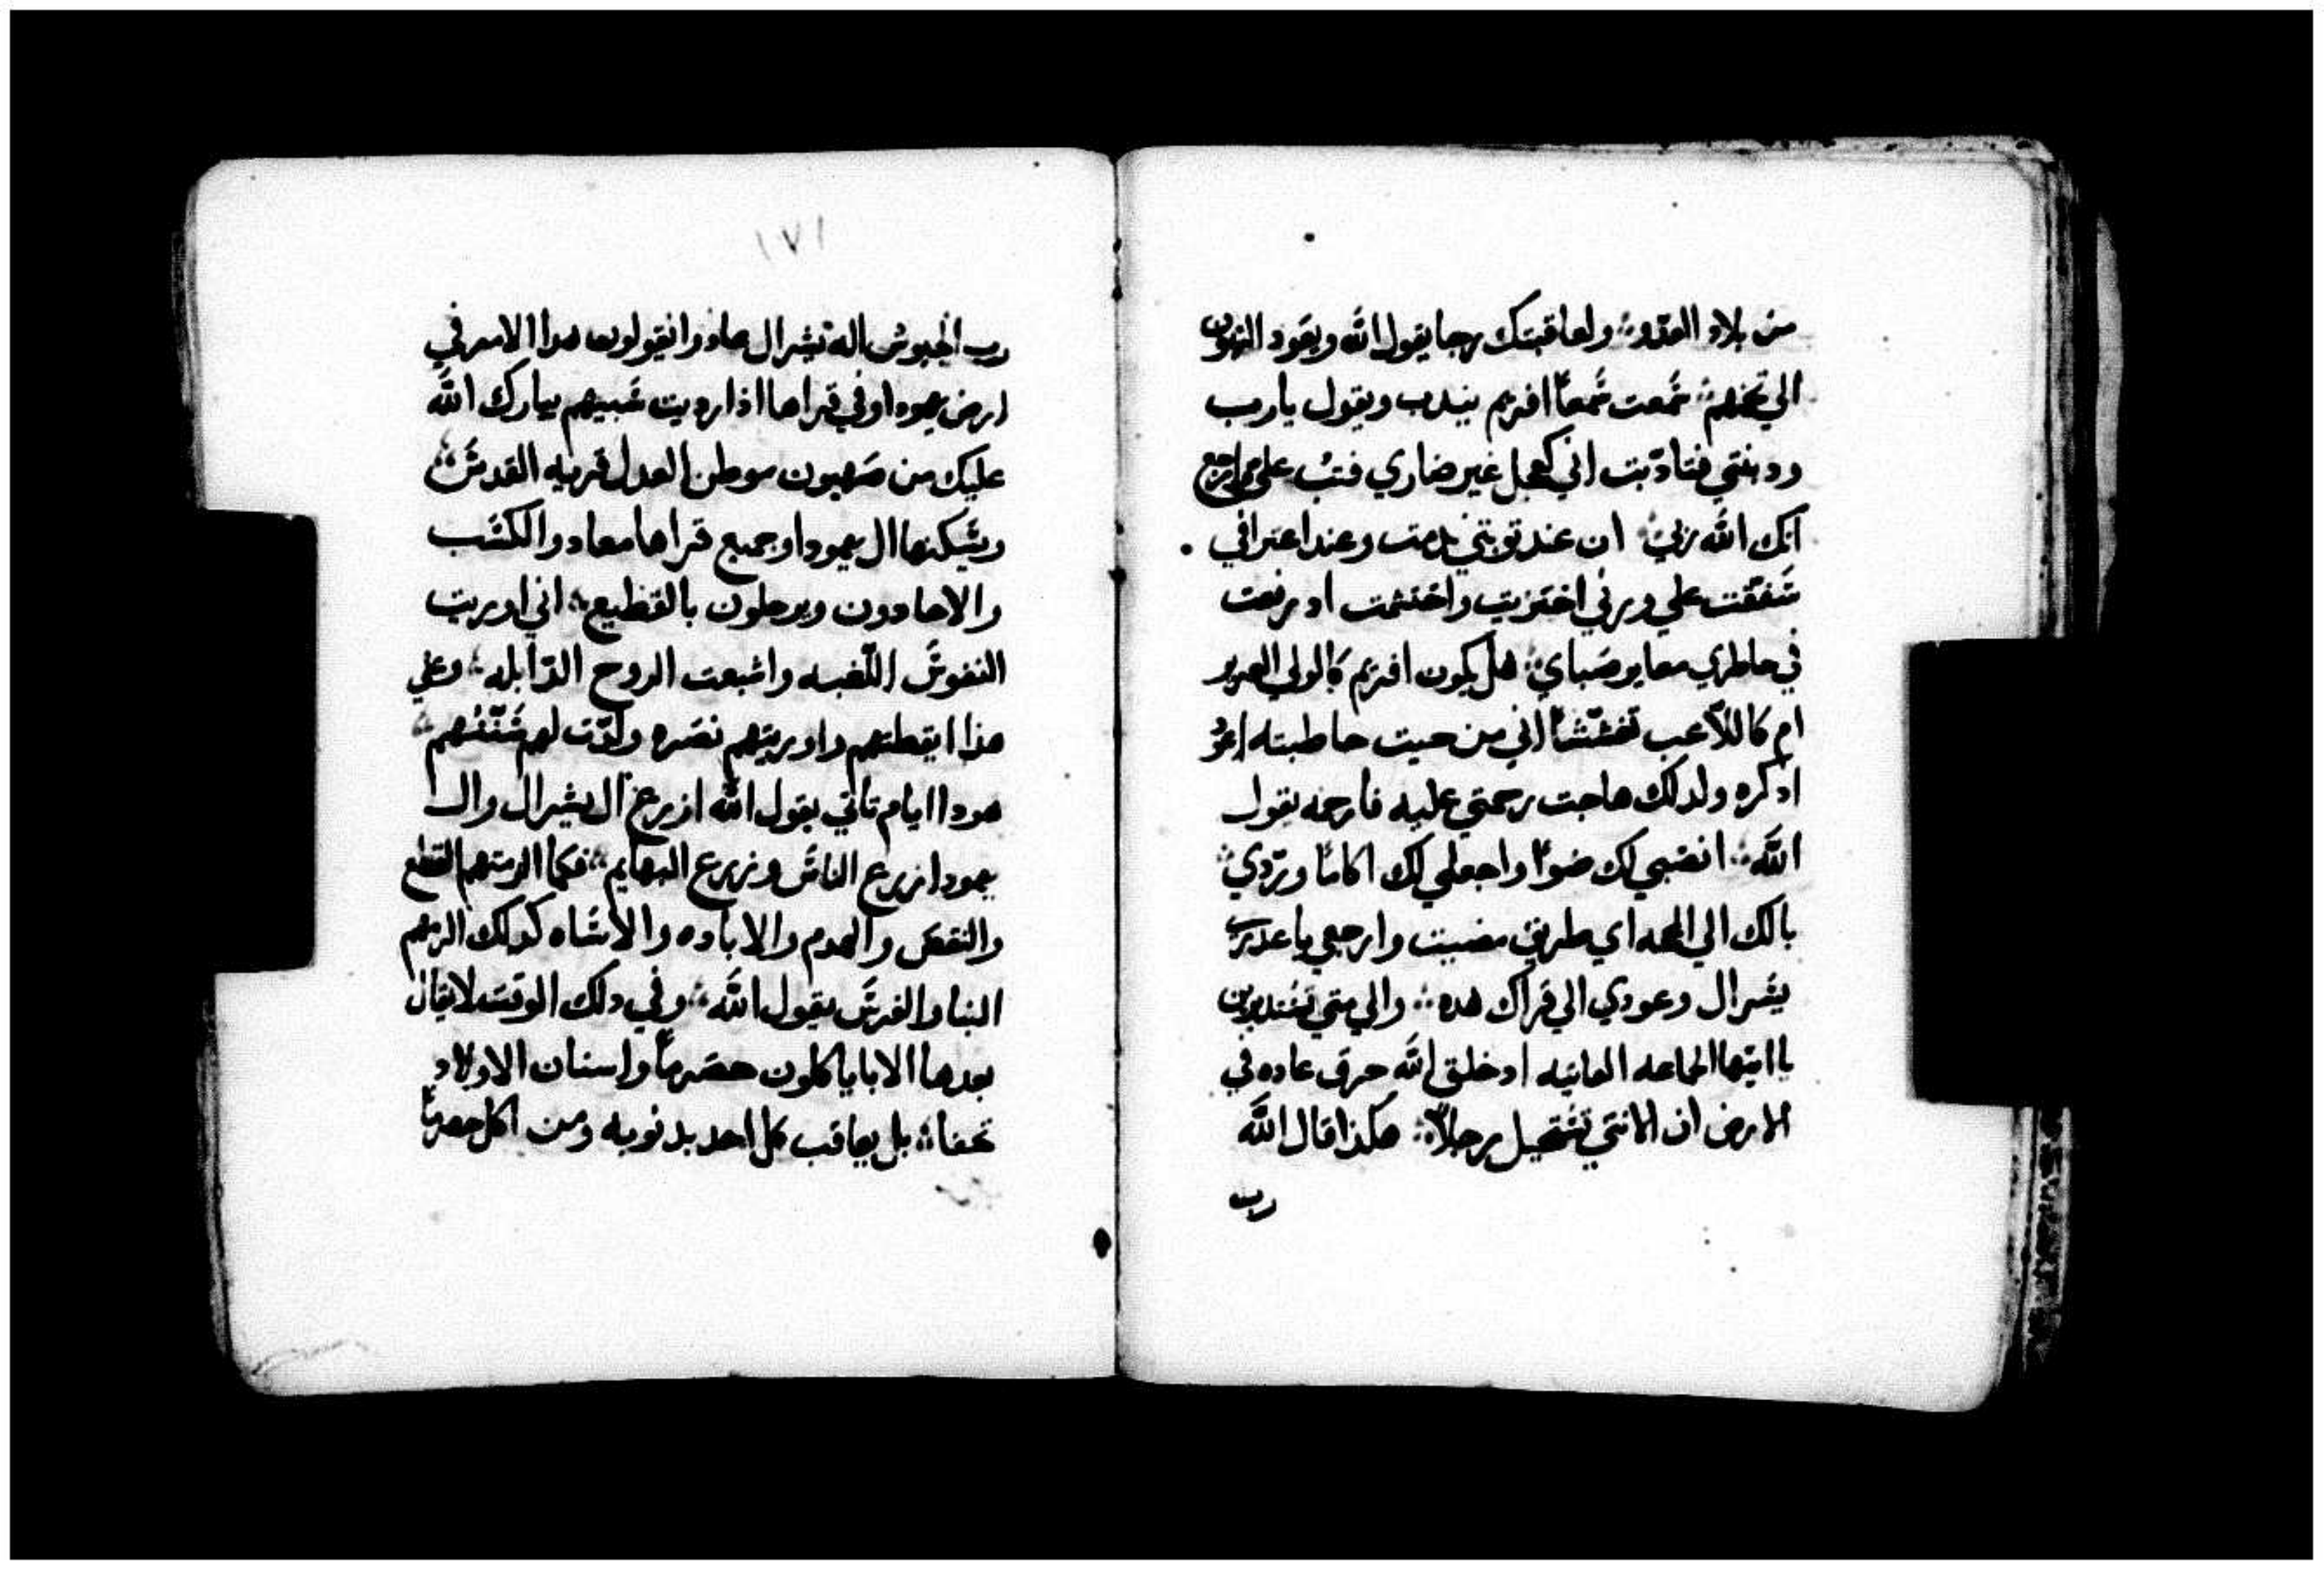 من بلاد العدو ولعاقبتك رجا يقول الله ويعود البنون
الي تخمهم سمعت سمعاً افريم يندب ويقول يارب
ودبتني فتادبت اني كعجل غير ضاري فتب علي
انك الله ربي ان عند توبتي ندمت وعند اعترافي
شفقت علي وبرني اختزيت واحتشمت اد رفعت
في خاطري معاير صباي هل يكون افريم كالولي العزيز
ام كاللاعب اني من حيت خاطبته
ادكره ولدلك هاجت رحمتي عليه فارحمه يقول
الله انصبي لك ضوا واجعلي لك اكاماً وتردي
بالك الي المحجه اي طريق مضيت وارجعي يا عدري
يشرال وعودي الي قراك هده والي متي
يا ايتها الجماعه العاتيه اد خلق الله خرق عاده في
الارض ان الانتي تستحيل رجلاً هكذا قال الله
رب
١٧١
رب الجيوش اله يشرال عادوا يقولون هدا الامر في
ارض يهودا وفي قراها اذا رديت سبيهم يبارك الله
عليك من صهيون موطن العدل قريه القدس
ويسكنها ال يهودا وجميع قراها معاد والكسب
والاحادون ويرحلون بالقطيع اني اوريت
النفوس اللغبه واشبعت الروح الدابله وعلي
هذا ايقظتهم واوريتهم نضره ولدت لهم
هودا ايام تاتي يقول الله ازرع ال يشرال وال
يهودا زرع الناس وزرع البهايم فكما الزمتهم القلع
والنقض والهدم والاباده والاساه كدلك الزمهم
البنا والغرس يقول الله وفي دلك الوقت لا يقال
بعدها الابا ياكلون حصرماً واسنان الاولاد
تحفا بل يعاقب كل احد بدنوبه ومن اكل حصرماً